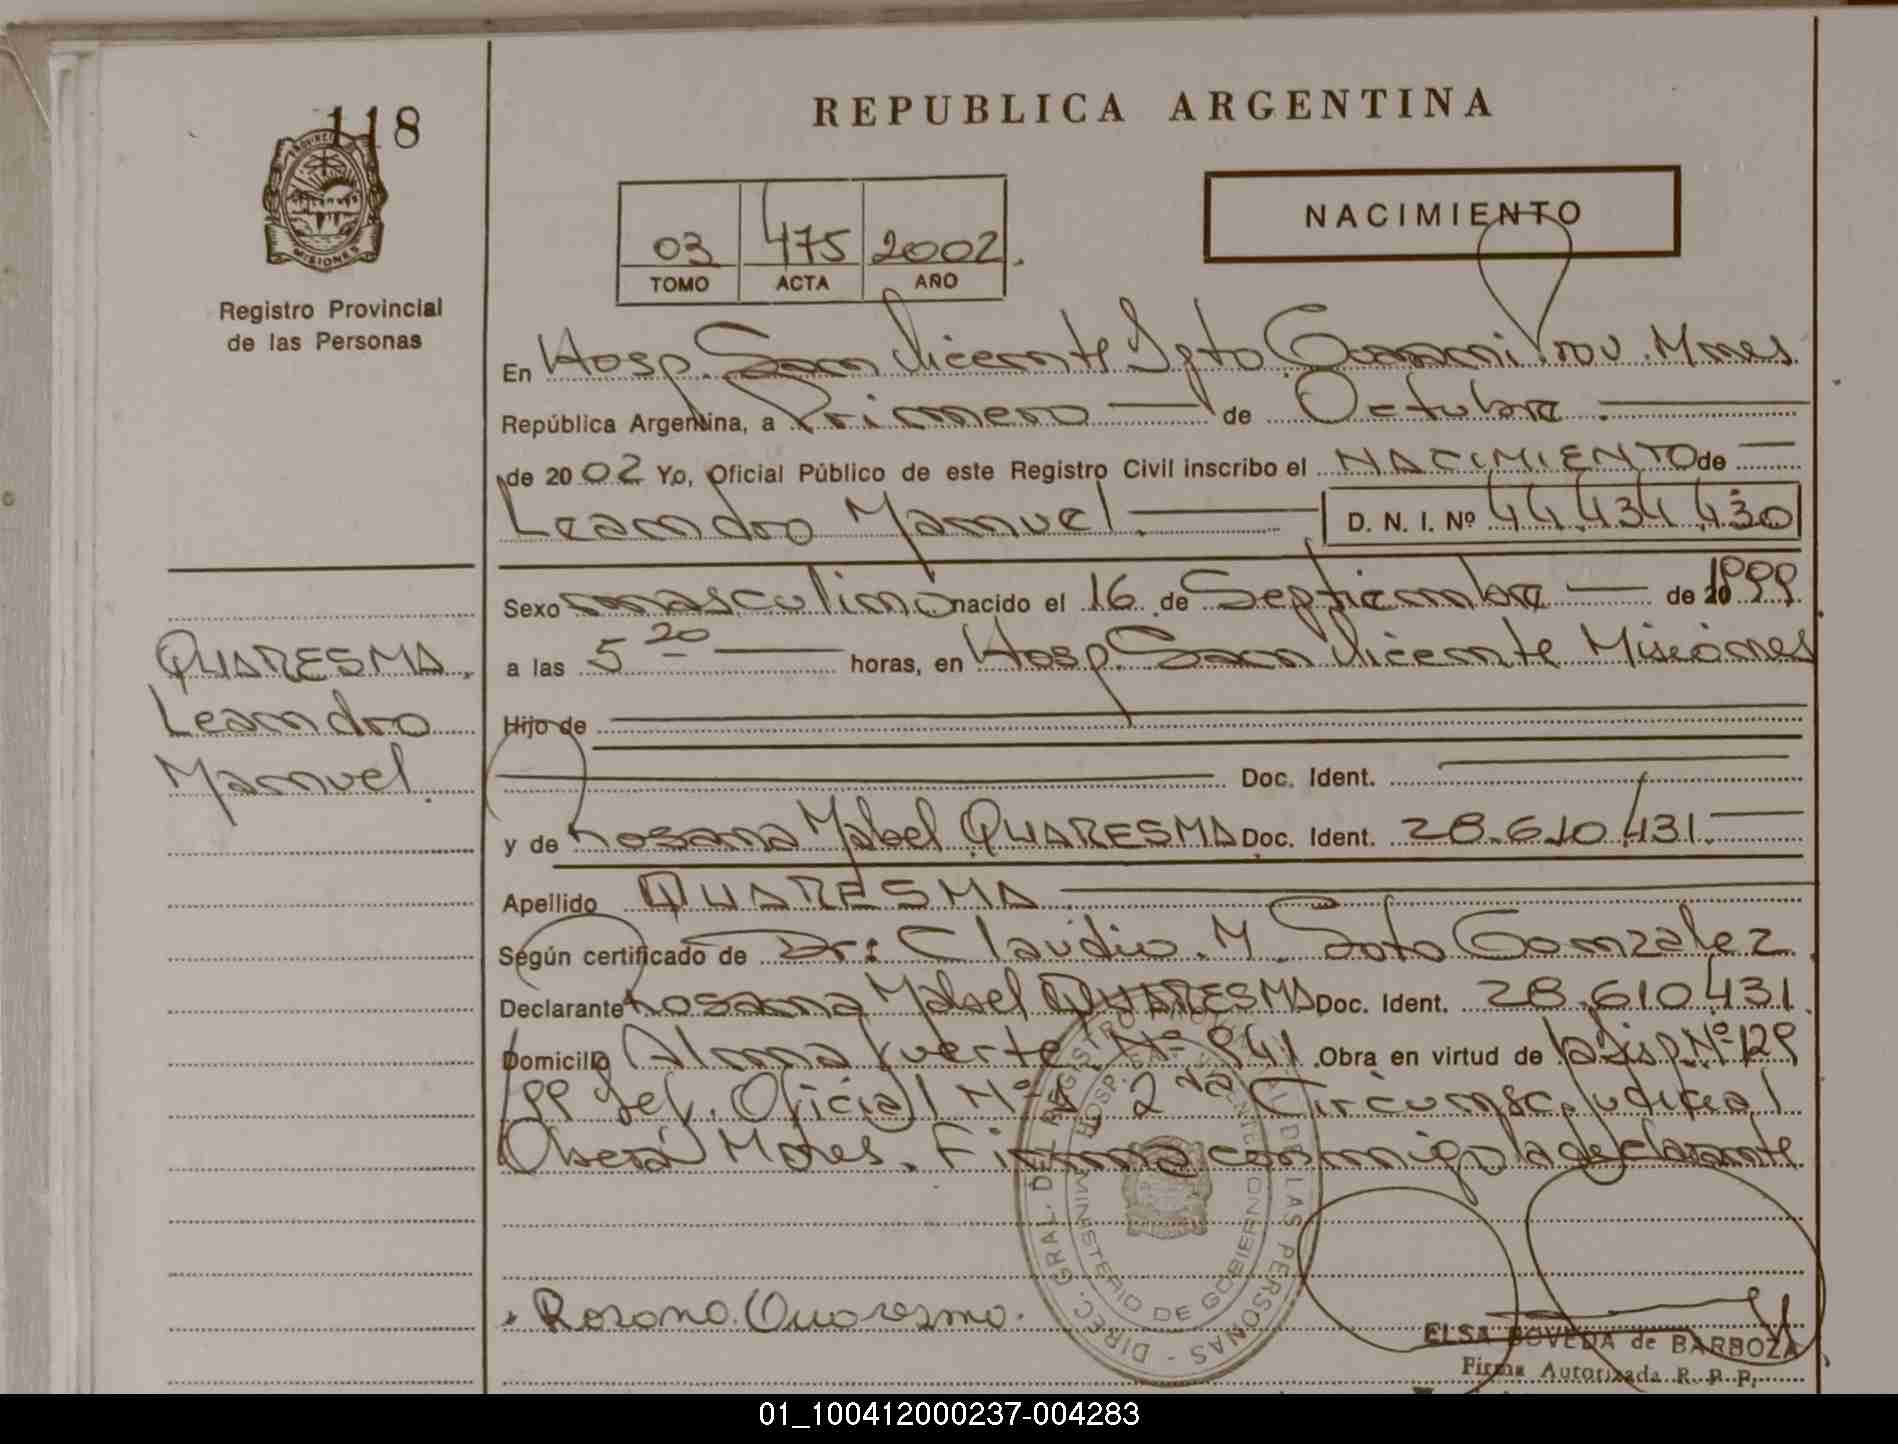 118
PROVINCIA
MISIONES
Registro Provincial
de las Personas
REPUBLICA ARGENTINA
03 475 2002.
TOMO ACTA AÑO
NACIMIENTO
En Hosp. San Vicente Dpto Guarani Prov. Mnes
República Argentina, a Primero de Octubre
de 2002 Yo, Oficial Público de este Registro Civil inscribo el NACIMIENTO de
Leandro Manuel. D. N. I. Nº 44.434.430
Sexo masculino nacido el 16 de Septiembre de 1999
a las 5 20 horas, en Hosp. San Vicente Misiones
Hijo de
Doc. Ident.
y de Rosana Mabel QUARESMA Doc. Ident. 28.610.431.
Apellido QUARESMA
Según certificado de Dr: Claudio. M. Soto Gonzalez
Declarante Rosana Mabel QUARESMA Doc. Ident. 28.610.431
Domicilio Alma fuerte Nº 941 .Obra en virtud de la Disp. Nº 129
199 Def. Oficial Nº 2da Circunsc. Judicial
Oberá Mnes. Firma conmigo la declarante
QUARESMA,
Leandro
Manuel.
Rosana Quaresma.
DIREC. GRAL. DEL REGISTRO PROVINCIAL DE LAS PERSONAS
HOSP. SAN VICENTE
MINISTERIO DE GOBIERNO
ELSA BOVEDA de BARBOZA
Firma Autorizada R. P. P.
01_100412000237-004283